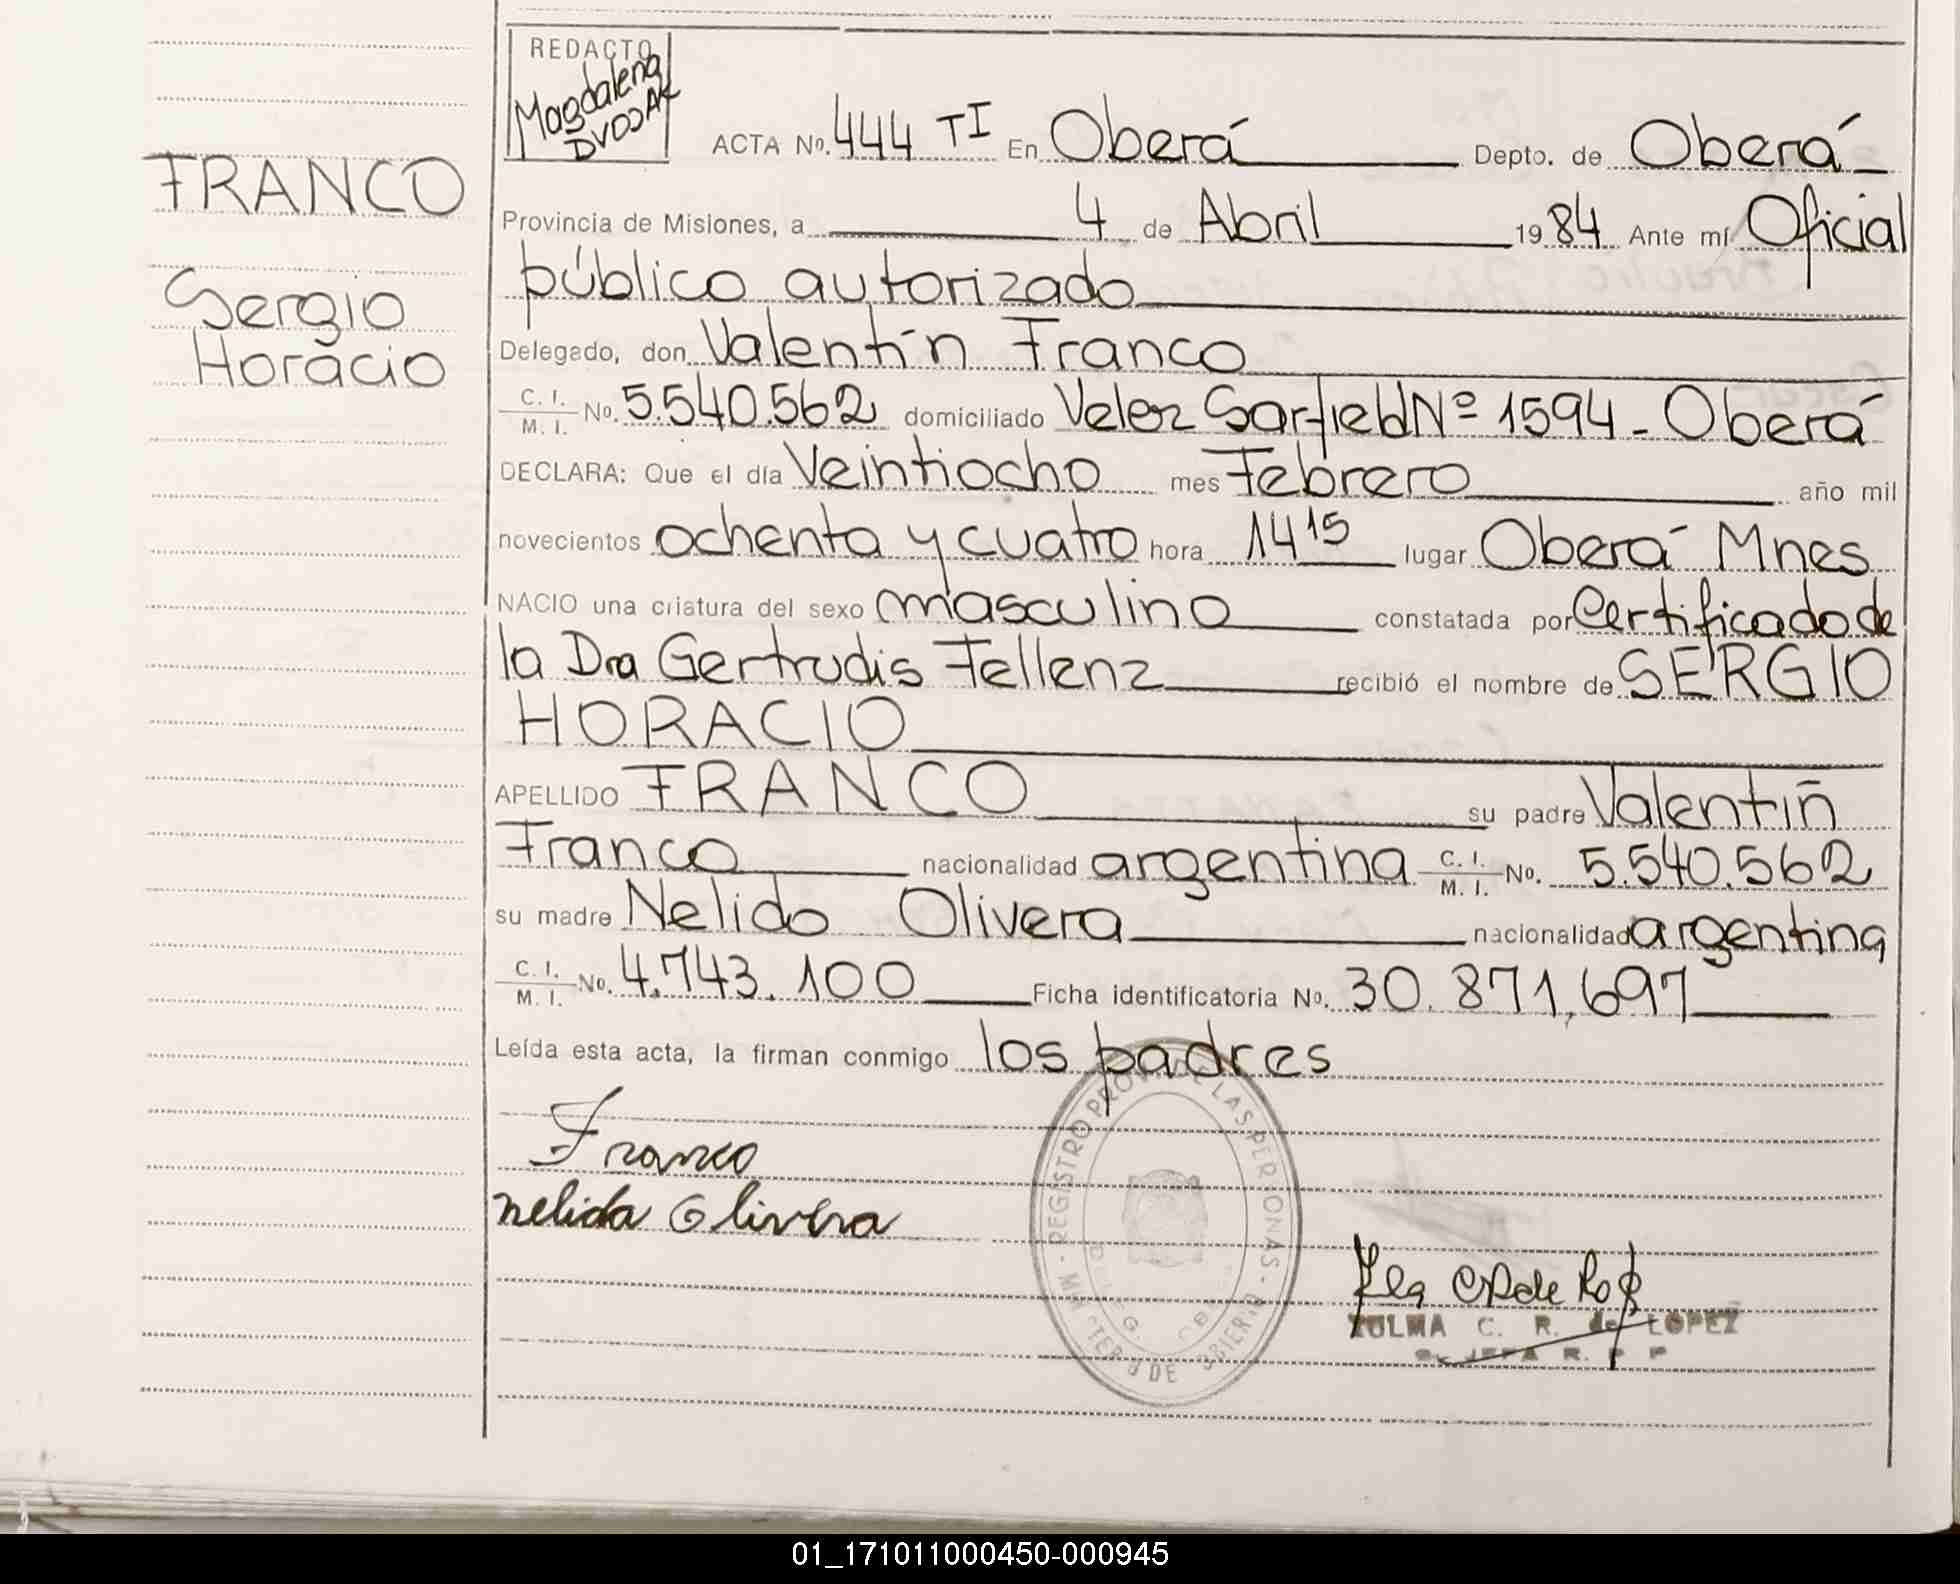 REDACTO
Magdalena
DVOJAK
FRANCO
Sergio
Horacio
ACTA No. 444 TI En Oberá Depto. de Oberá
Provincia de Misiones, a 4 de Abril 1984 Ante mí Oficial
público autorizado
Delegado, don Valentín Franco
C. I. / M. I. No. 5.540.562 domiciliado Velez Sarfield Nº 1594 - Oberá
DECLARA: Que el día Veintiocho mes Febrero año mil
novecientos ochenta y cuatro hora 14 15 lugar Oberá Mnes
NACIO una criatura del sexo masculino constatada por Certificado de
la Dra Gertrudis Fellenz recibió el nombre de SERGIO
HORACIO
APELLIDO FRANCO su padre Valentin
Franco nacionalidad argentina C. I. / M. I. No. 5.540.562
su madre Nelida Olivera nacionalidad argentina
C. I. / M. I. No. 4.743.100 Ficha identificatoria No. 30.871.697
Leída esta acta, la firman conmigo los padres
Franco
nelida Olivera
REGISTRO PROV. DE LAS PERSONAS
ZULMA C. R. de LOPEZ
JEFA R. P. P
01_171011000450-000945